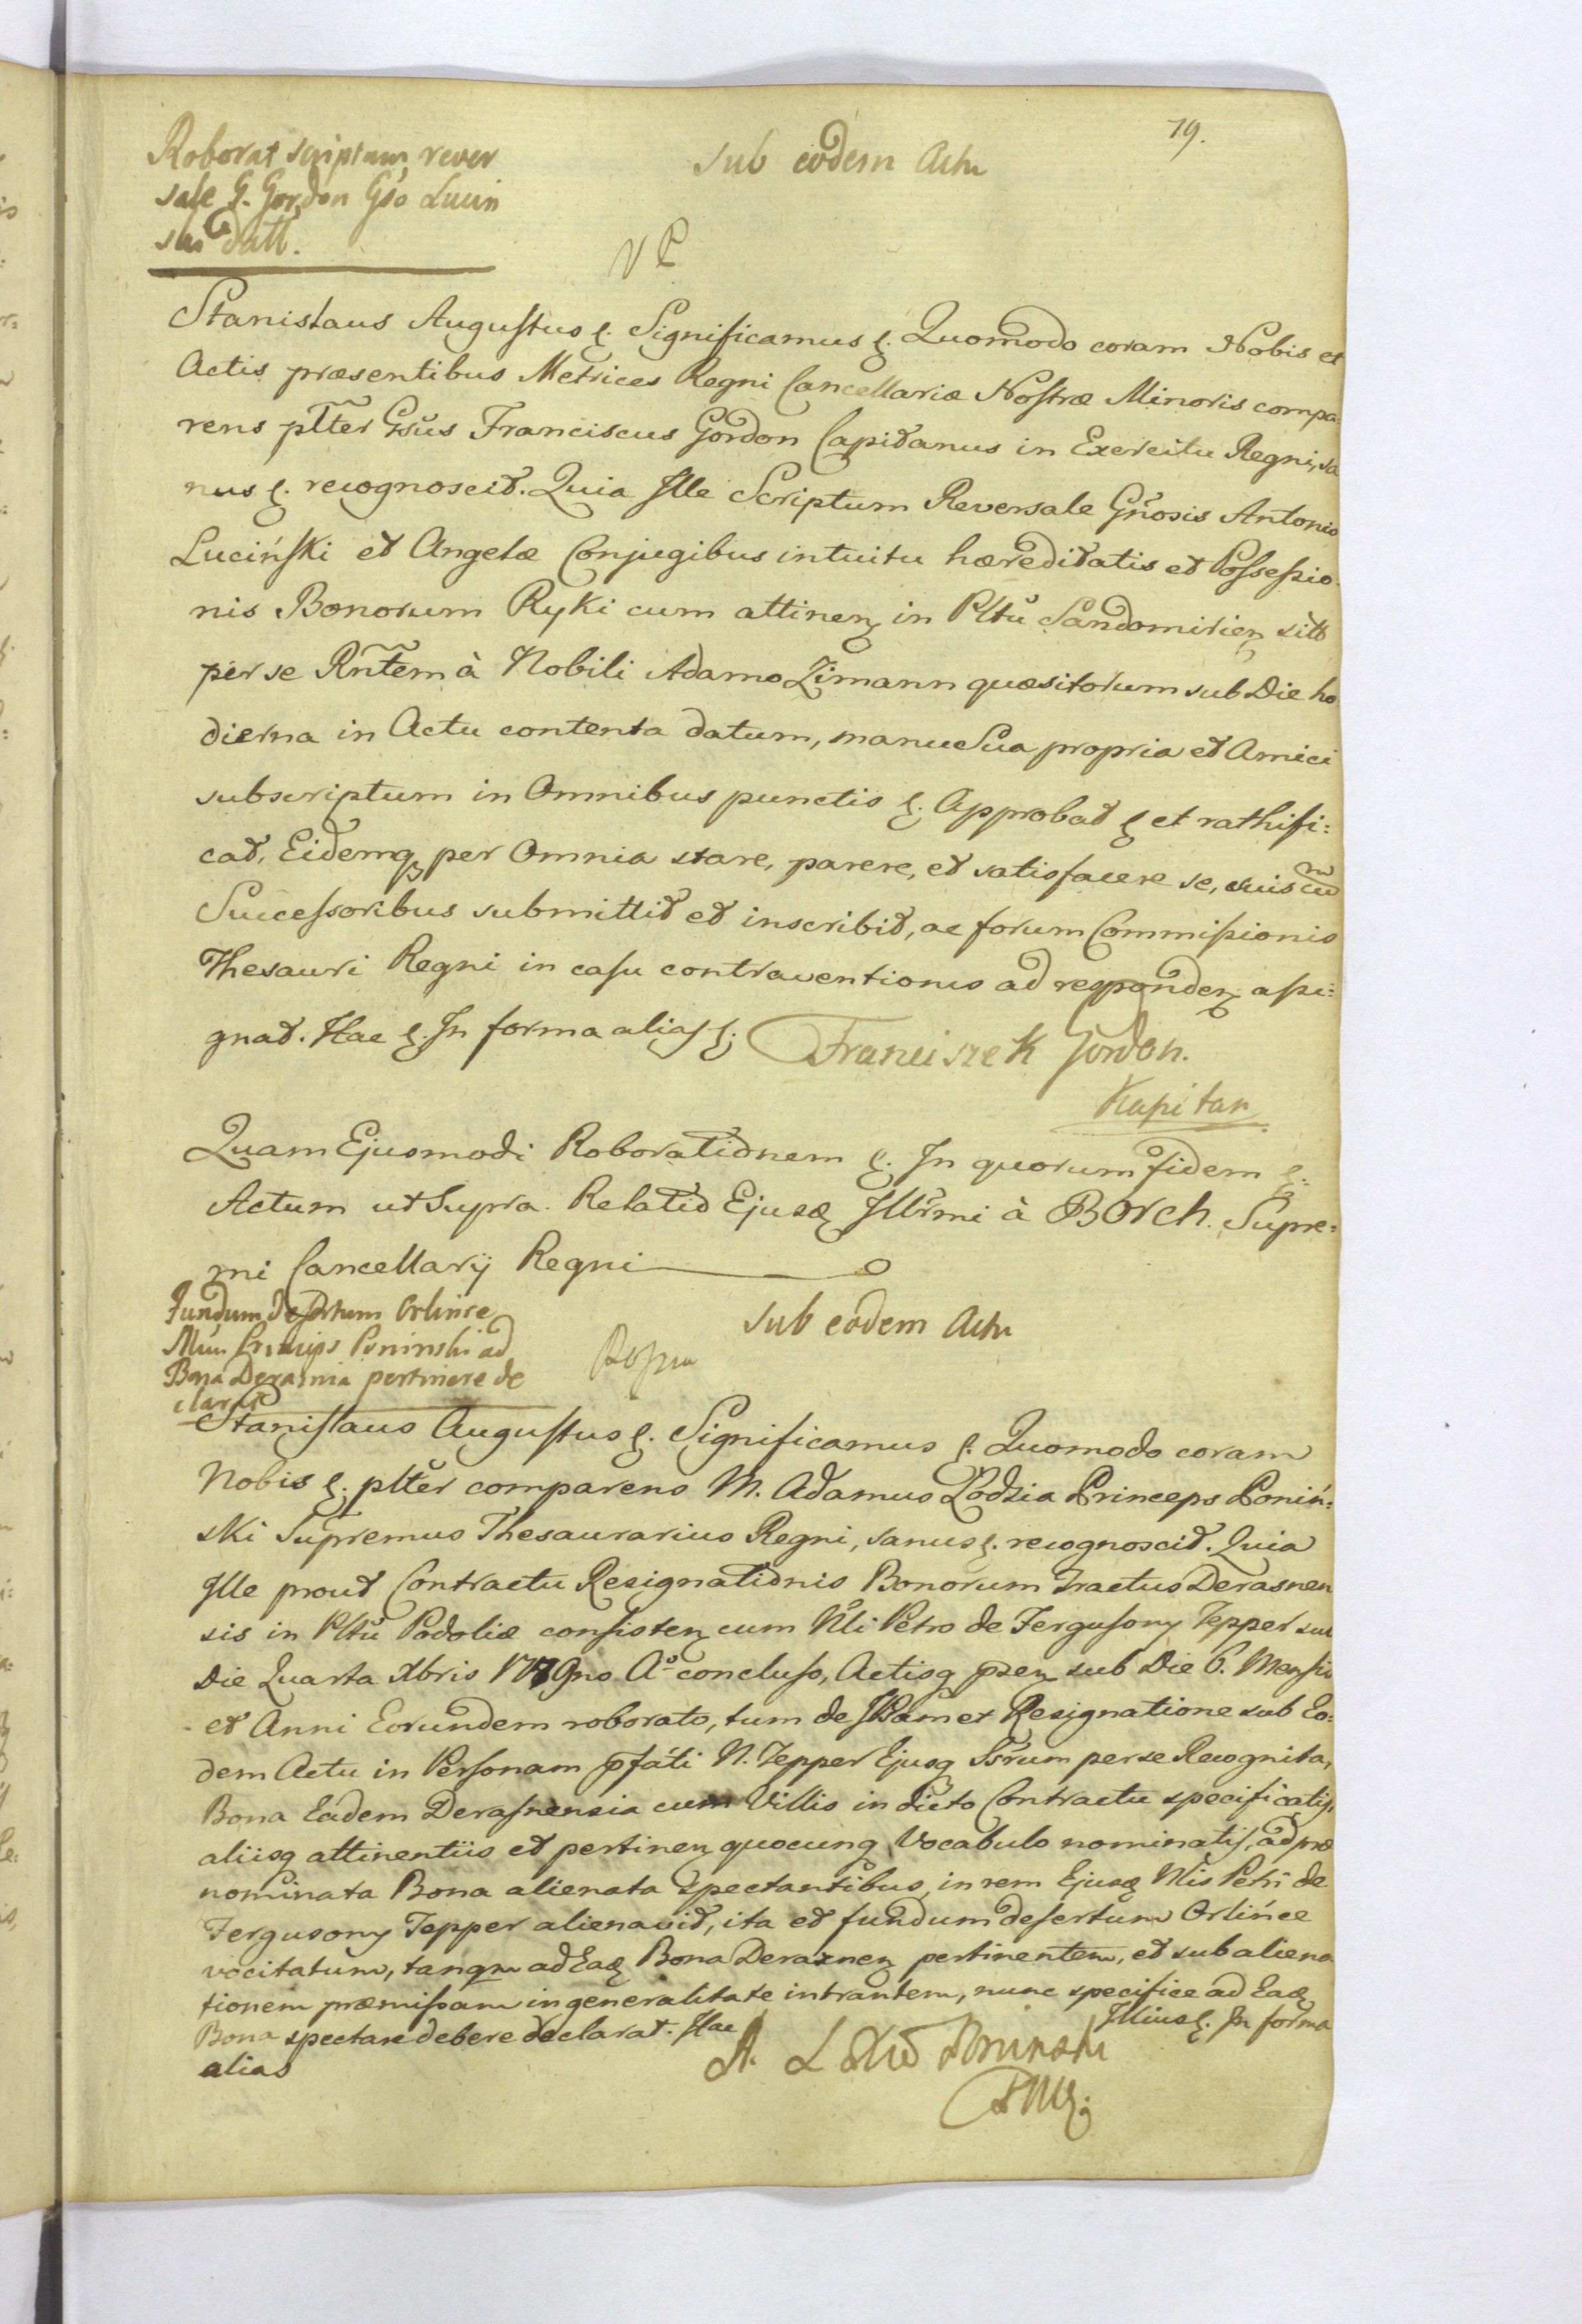 79.
Roborat scriptum rever
sale G. Gordon Gso Lucin
ski datt.
Sub eodem Actu
Stanislaus Augustus &. Significamus &. Quomodo coram Nobis et
Actis præsentibus Metrices Regni Cancellariæ Nostræ Minoris compa
rens pltter Gsus Franciscus Gordon Capitanus in Exercitu Regni, sa
nus &. recognoscit. Quia Ille Scriptum Reversale Gnosis Antonio
Luciński et Angelæ Conjugibus intuitu hæreditatis et Possessio
nis Bonorum Ryki cum attinen in Pltu Sandomirien sitt
per se Rntem à Nobili Adamo Zimann quæsitorum sub Die ho
dierna in Actu contenta datum, manu Sua propria et Amici
subscriptum in Omnibus punctis &. Approbat & et rathifi:
cat, Eidemq per Omnia stare, parere, et satisfacere se, suis cum
Successoribus submittit et inscribit, ac forum Commissionis
Thesauri Regni in casu contraventionis ad responden assi:
gnat. Hac &. In forma alias &.
Franciszek Gordon.
Kapitan
Quam Ejusmodi Roborationem &. In quorum fidem &.
Actum ut Supra. Relatio Ejusd Illrmi à Borch. Supre:
mi Cancellarij Regni
Fundum Desertum Orlince
Mm Princips Poninski ad
Bona Derasnia pertinere de
clarat
Sub eodem Actu
Stanislaus Augustus &. Significamus &. Quomodo coram
Nobis &. pltter comparens M. Adamus Łodzia Princeps Poniń:
ski Supremus Thesaurarius Regni, sanus &. recognoscit. Quia
Ille prout Contractu Resignationis Bonorum Tractus Derasnen
sis in Pltu Podoliæ consisten cum Nli Petro de Fergusony Tepper sub
Die Quarta Xbris 1779no Ao concluso, Actisq præn sub Die 6. Mensis
et Anni Eorundem roborato, tum de Resignatione sub Eo:
dem Actu in Personam pfati N. Tepper Ejusq Ssrum per se Recognita,
Bona Eadem Derasnensia cum Villis in dicto Contractu specificatis,
aliisq attinentiis et pertinen quocunq Vocabulo nominatis, ad præ
nominata Bona alienata spectantibus, in rem Ejusd Nlis Petri de
Fergusony Tepper alienavit, ita et fundum desertum Orlińce
vocitatum, tanqm ad Ead Bona Deraznen pertinentem, et sub aliena
tionem præmissam in generalitate intrantem, nunc specifice ad Ead
Bona spectare debere declarat. Hac Illius &. In forma
alias
A. Poninski